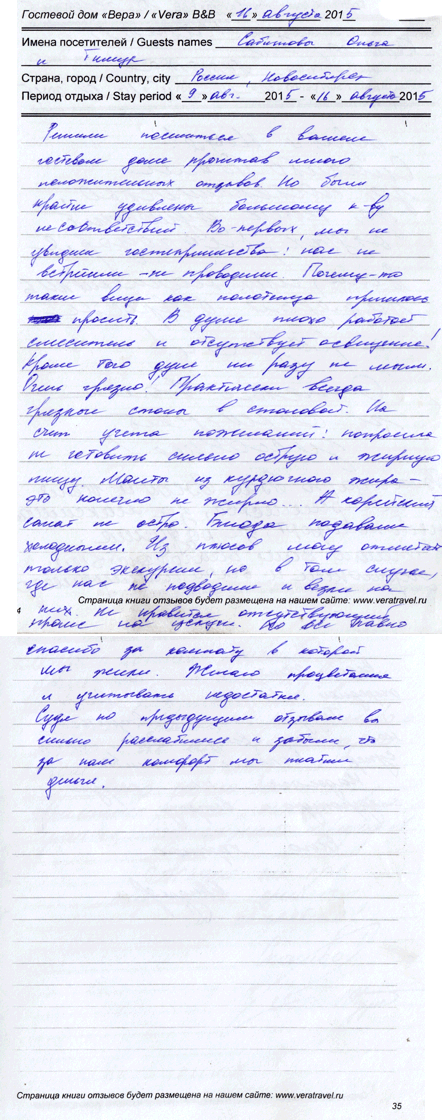 Гостевой дом «Вера» / «Vera» B&B « 16 » августа 2015
Имена посетителей / Guests names Сабитовы Ольга
и Тимур
Страна, город / Country, city Россия, Новосибирск
Период отдыха / Stay period « 9 » авг. 2015 - « 16 » августа 2015
Решили поселиться в вашем
гостевом доме прочитав много
положительных отзывов. Но были
крайне удивлены большому к-ву
несоответствий. Во-первых, мы не
увидели гостеприимства: нас не
встретили – не проводили. Почему-то
такие вещи как полотенца пришлось
просить. В душе плохо работает
смеситель и отсутствует освещение!
Кроме того душ ни разу не мыли.
Очень грязно! Практически всегда
грязные столы в столовой. На
счет учета пожеланий: попросила
не готовить сильно острую и жирную
пищу. Манты из курдючного жира –
это конечно не жирно... А корейский
салат не остро. Блюда подавали
холодными. Из плюсов могу отметить
только экскурсии, но в том случае,
где нас не подводили и везли на
Страница книги отзывов будет размещена на нашем сайте: www.veratravel.ru
4
них. Не нравится отсутствующий
прайс на экскурс. Но все равно
спасибо за комнату в которой
мы жили. Желаю процветания
и учитывать недостатки.
Судя по предыдущим отзывам вы
сильно расслабились и забыли, что
за наш комфорт мы платим
деньги.
Страница книги отзывов будет размещена на нашем сайте: www.veratravel.ru
35